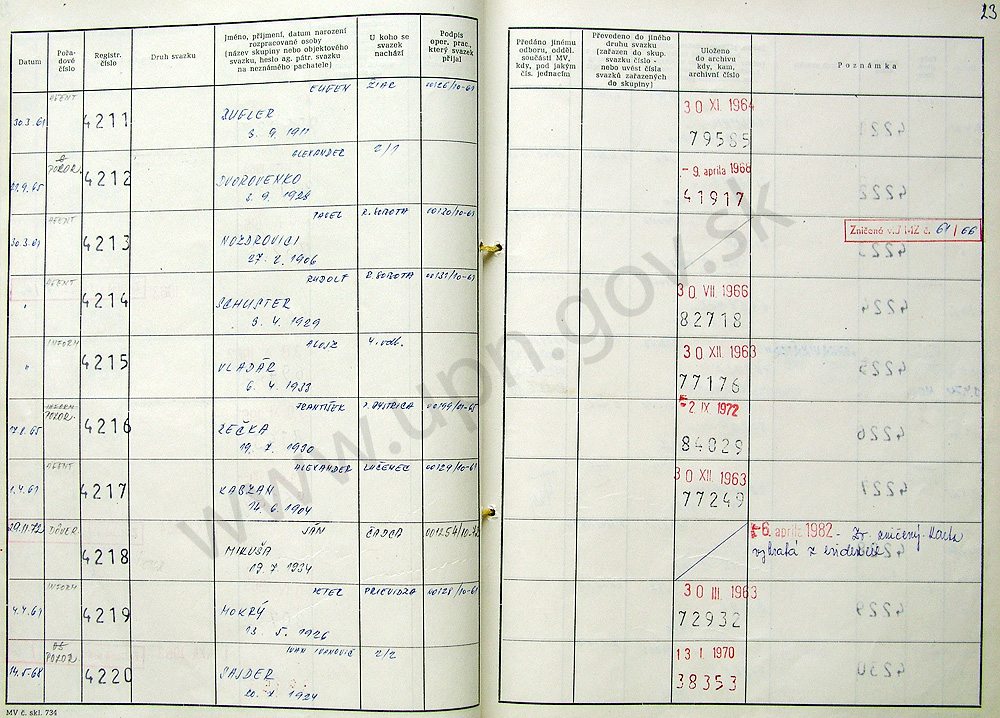 23
Datum
Pořa-
dové
číslo
Registr.
číslo
Druh svazku
Jméno, příjmení, datum narození
rozpracované osoby
(název skupiny nebo objektového
svazku, heslo ag. pátr. svazku
na neznámého pachatele)
U koho se
svazek
nachází
Podpis
oper. prac.,
který svazek
přijal
Předáno jinému
odboru, odděl.
součásti MV,
kdy, pod jakým
čís. jednacím
Převedeno do jiného
druhu svazku
(zařazen do skup.
svazku číslo -
nebo uvést čísla
svazků zařazených
do skupiny)
Uloženo
do archivu
kdy, kam,
archivní číslo
Poznámka
AGENT EUGEN ŽIAR 00126/10-61
30.3.61 4211 BUGLER
3. 9. 1911
30 XI. 1964
79585
POZOR. ALEXANDER 2/1
4212 DVOROVENKO
3. 9. 1926
- 9. aprila 1968
41917
AGENT PAVEL R. SOBOTA 00130/10-61
30.3.61 4213 NOZDROVICI
27. 2. 1906
Zničené v.J MZ č. 61/66
AGENT RUDOLF R. SOBOTA 00131/10-61
" 4214 SCHUSTER
3. 4. 1929
30. VII 1966
82718
INFORM ALOJZ 4. odb.
" 4215 VLADÁR
6. 4. 1933
30 XII. 1963
77176
INFORM. FRANTIŠEK B. BYSTRICA
POZOR. 4216 ZEČKA
19. 7. 1930
2. IX 1972
84029
AGENT ALEXANDER LUČENEC 00129/10-61
1.4.61 4217 KABZAN
14. 6. 1904
30 XII. 1963
77249
29.11.72 DÔVER. JÁN ČADCA 001254/10-72
4218 MIKUŠA
17. 7 1934
6. aprila 1982 - Zv. zničený. Karta
vybratá z evidencie
INFORM PETER PRIEVIDZA 00128/10-61
4.4.61 4219 MOKRÝ
13. 5. 1926
30 III. 1963
72932
POZOR IVAN IVANOVIČ 2/2
14.5.68 4220 ŠAJDER
20. 7. 1924
13 I. 1970
38353
MV č. skl. 734
www.upn.gov.sk